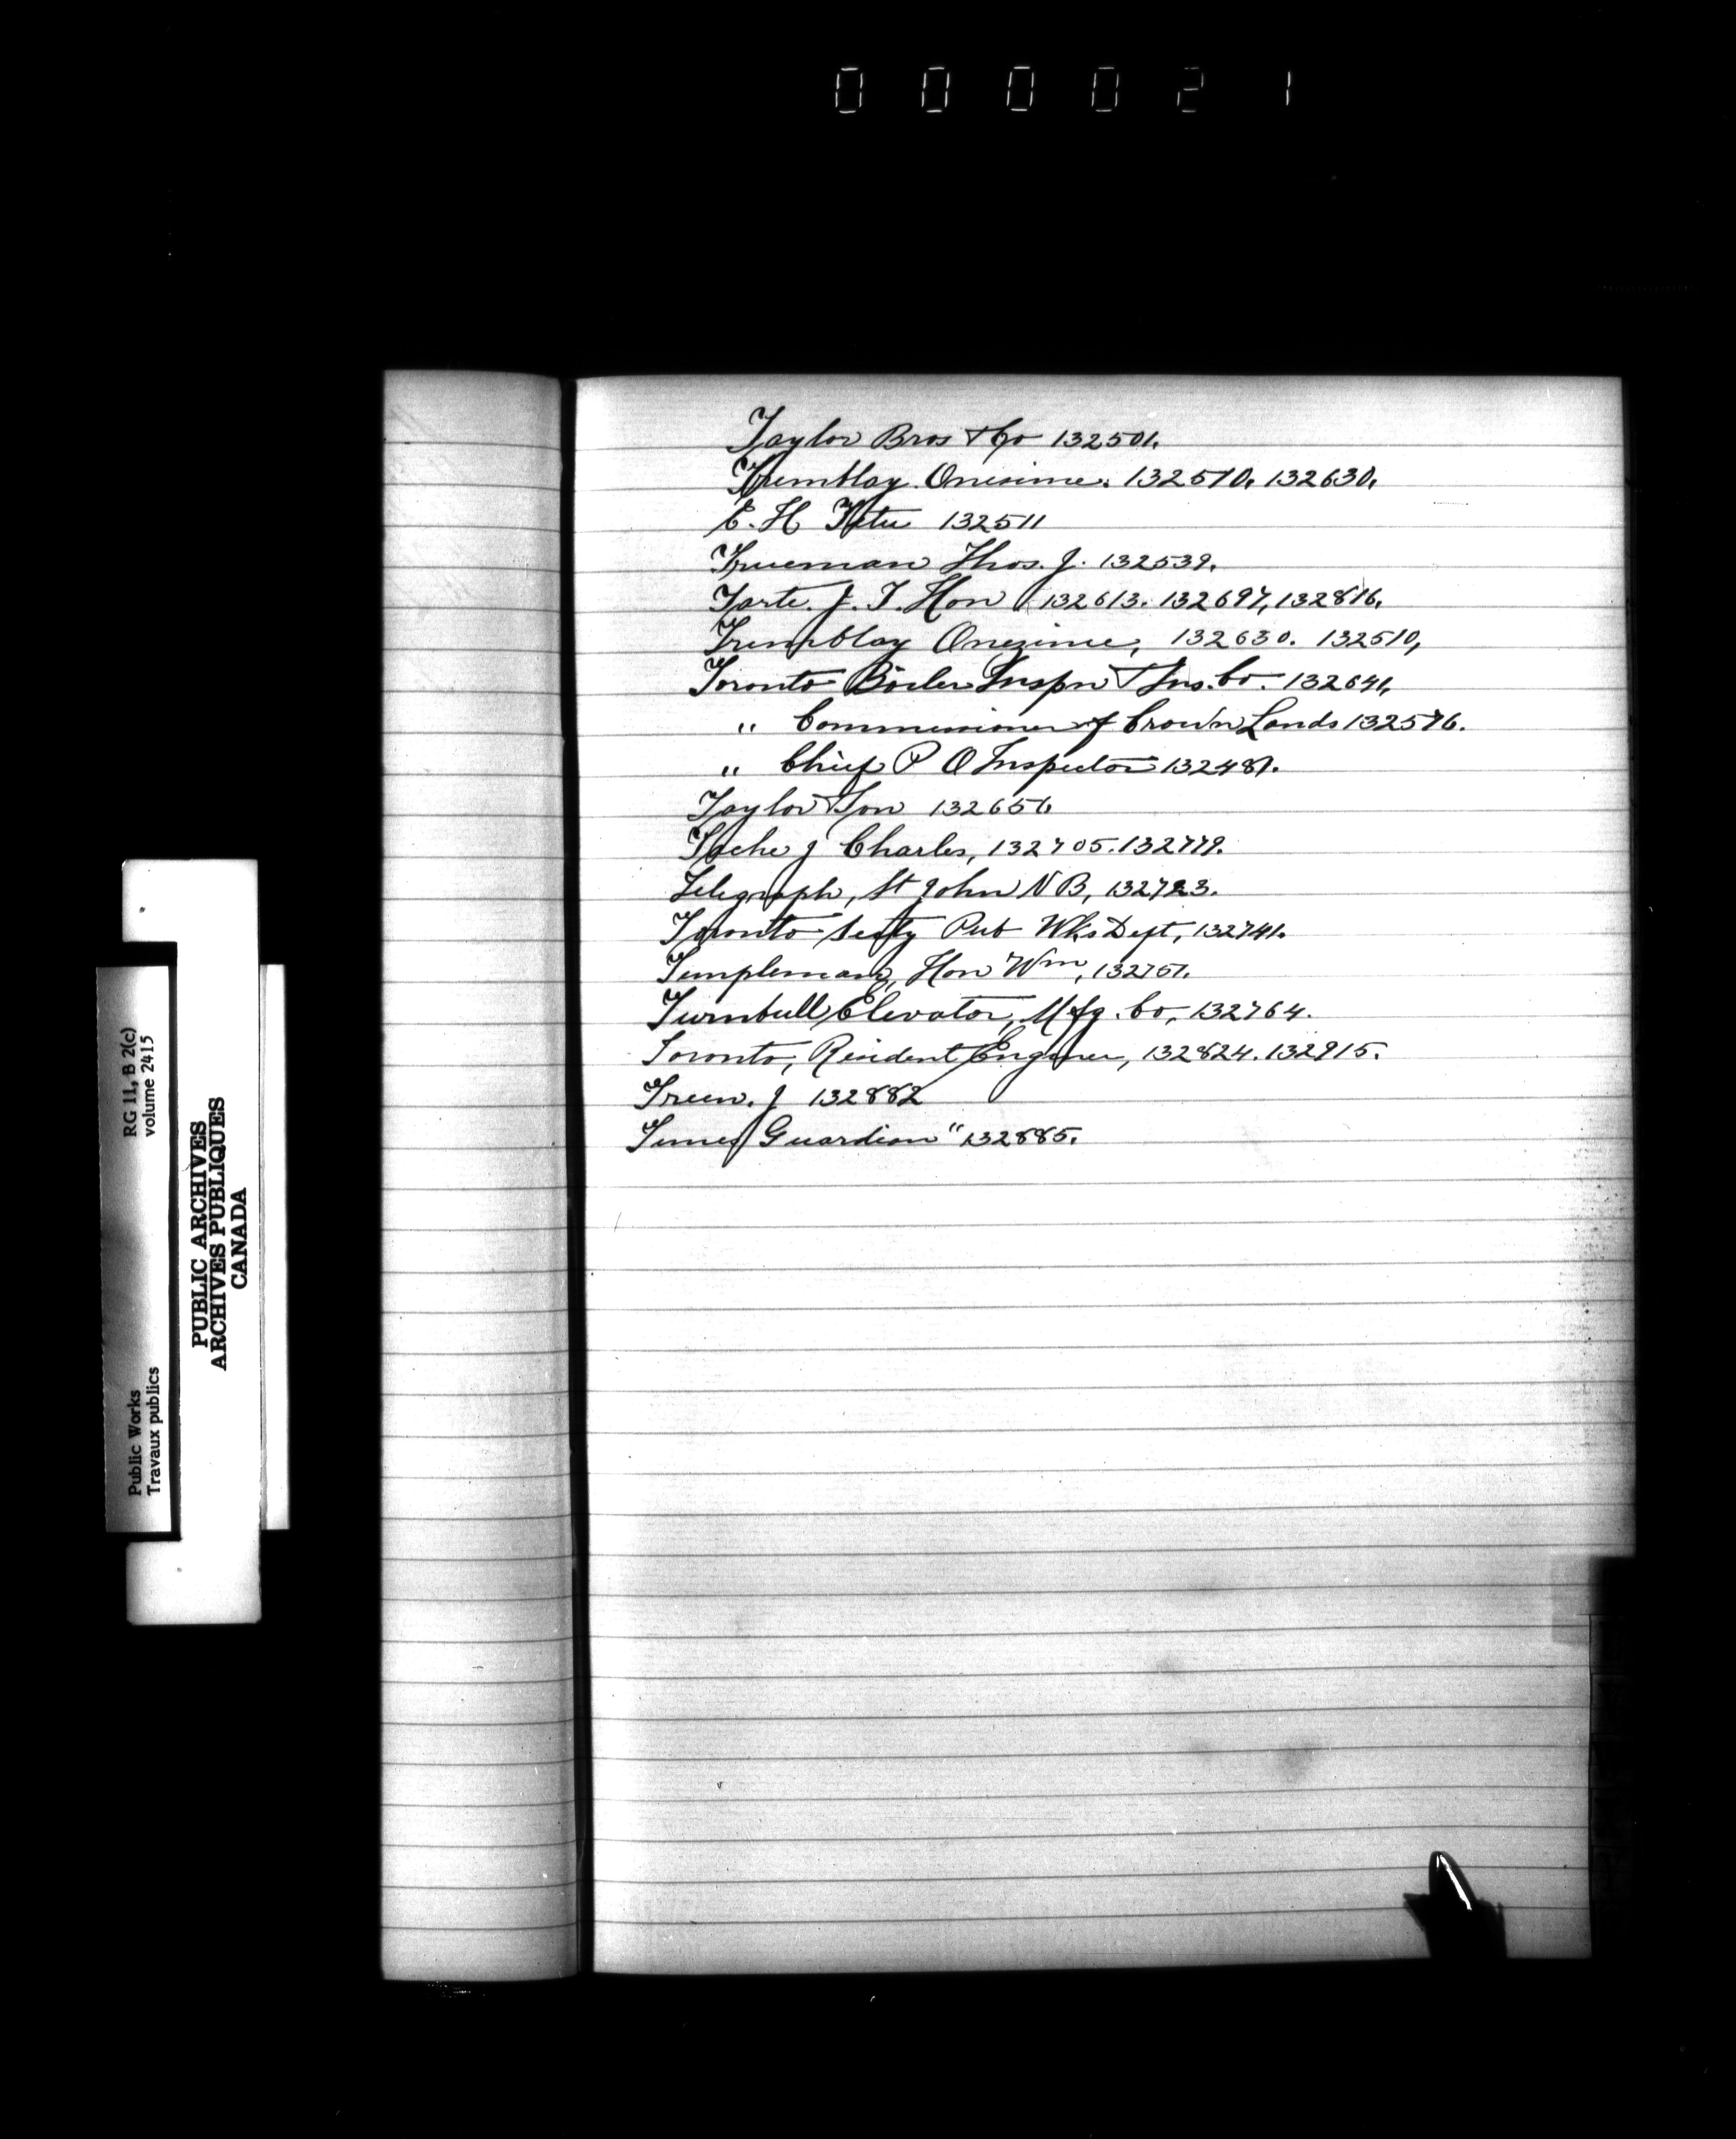 000021
Taylor Bros & Co 132501.
Tremblay Onesime. 132510. 132630.
E. H Tetu 132511
Trueman Thos. J. 132539.
Tarte. J. I. Hon 132613. 132697, 132816.
Tremblay Onezime, 132630. 132510,
Toronto Boiler Inspn & Ins. Co. 132641,
" Commissioner of Crown Lands 132576.
" Chief P O Inspector 132481.
Taylor & Son 132651
Tache J Charles, 132705. 132779.
Telegraph, St John N B, 132723.
Toronto Secty Pub Wks Dept, 132741.
Templeman, Hon Wm, 132751.
Turnbull Elevator, Mfg. Co, 132764.
Toronto, Resident Engineer, 132824. 132915.
Treen. J 132882
Times Guardian" 132885.
Public Works RG 11, B 2(c)
Travaux publics volume 2415
PUBLIC ARCHIVES
ARCHIVES PUBLIQUES
CANADA